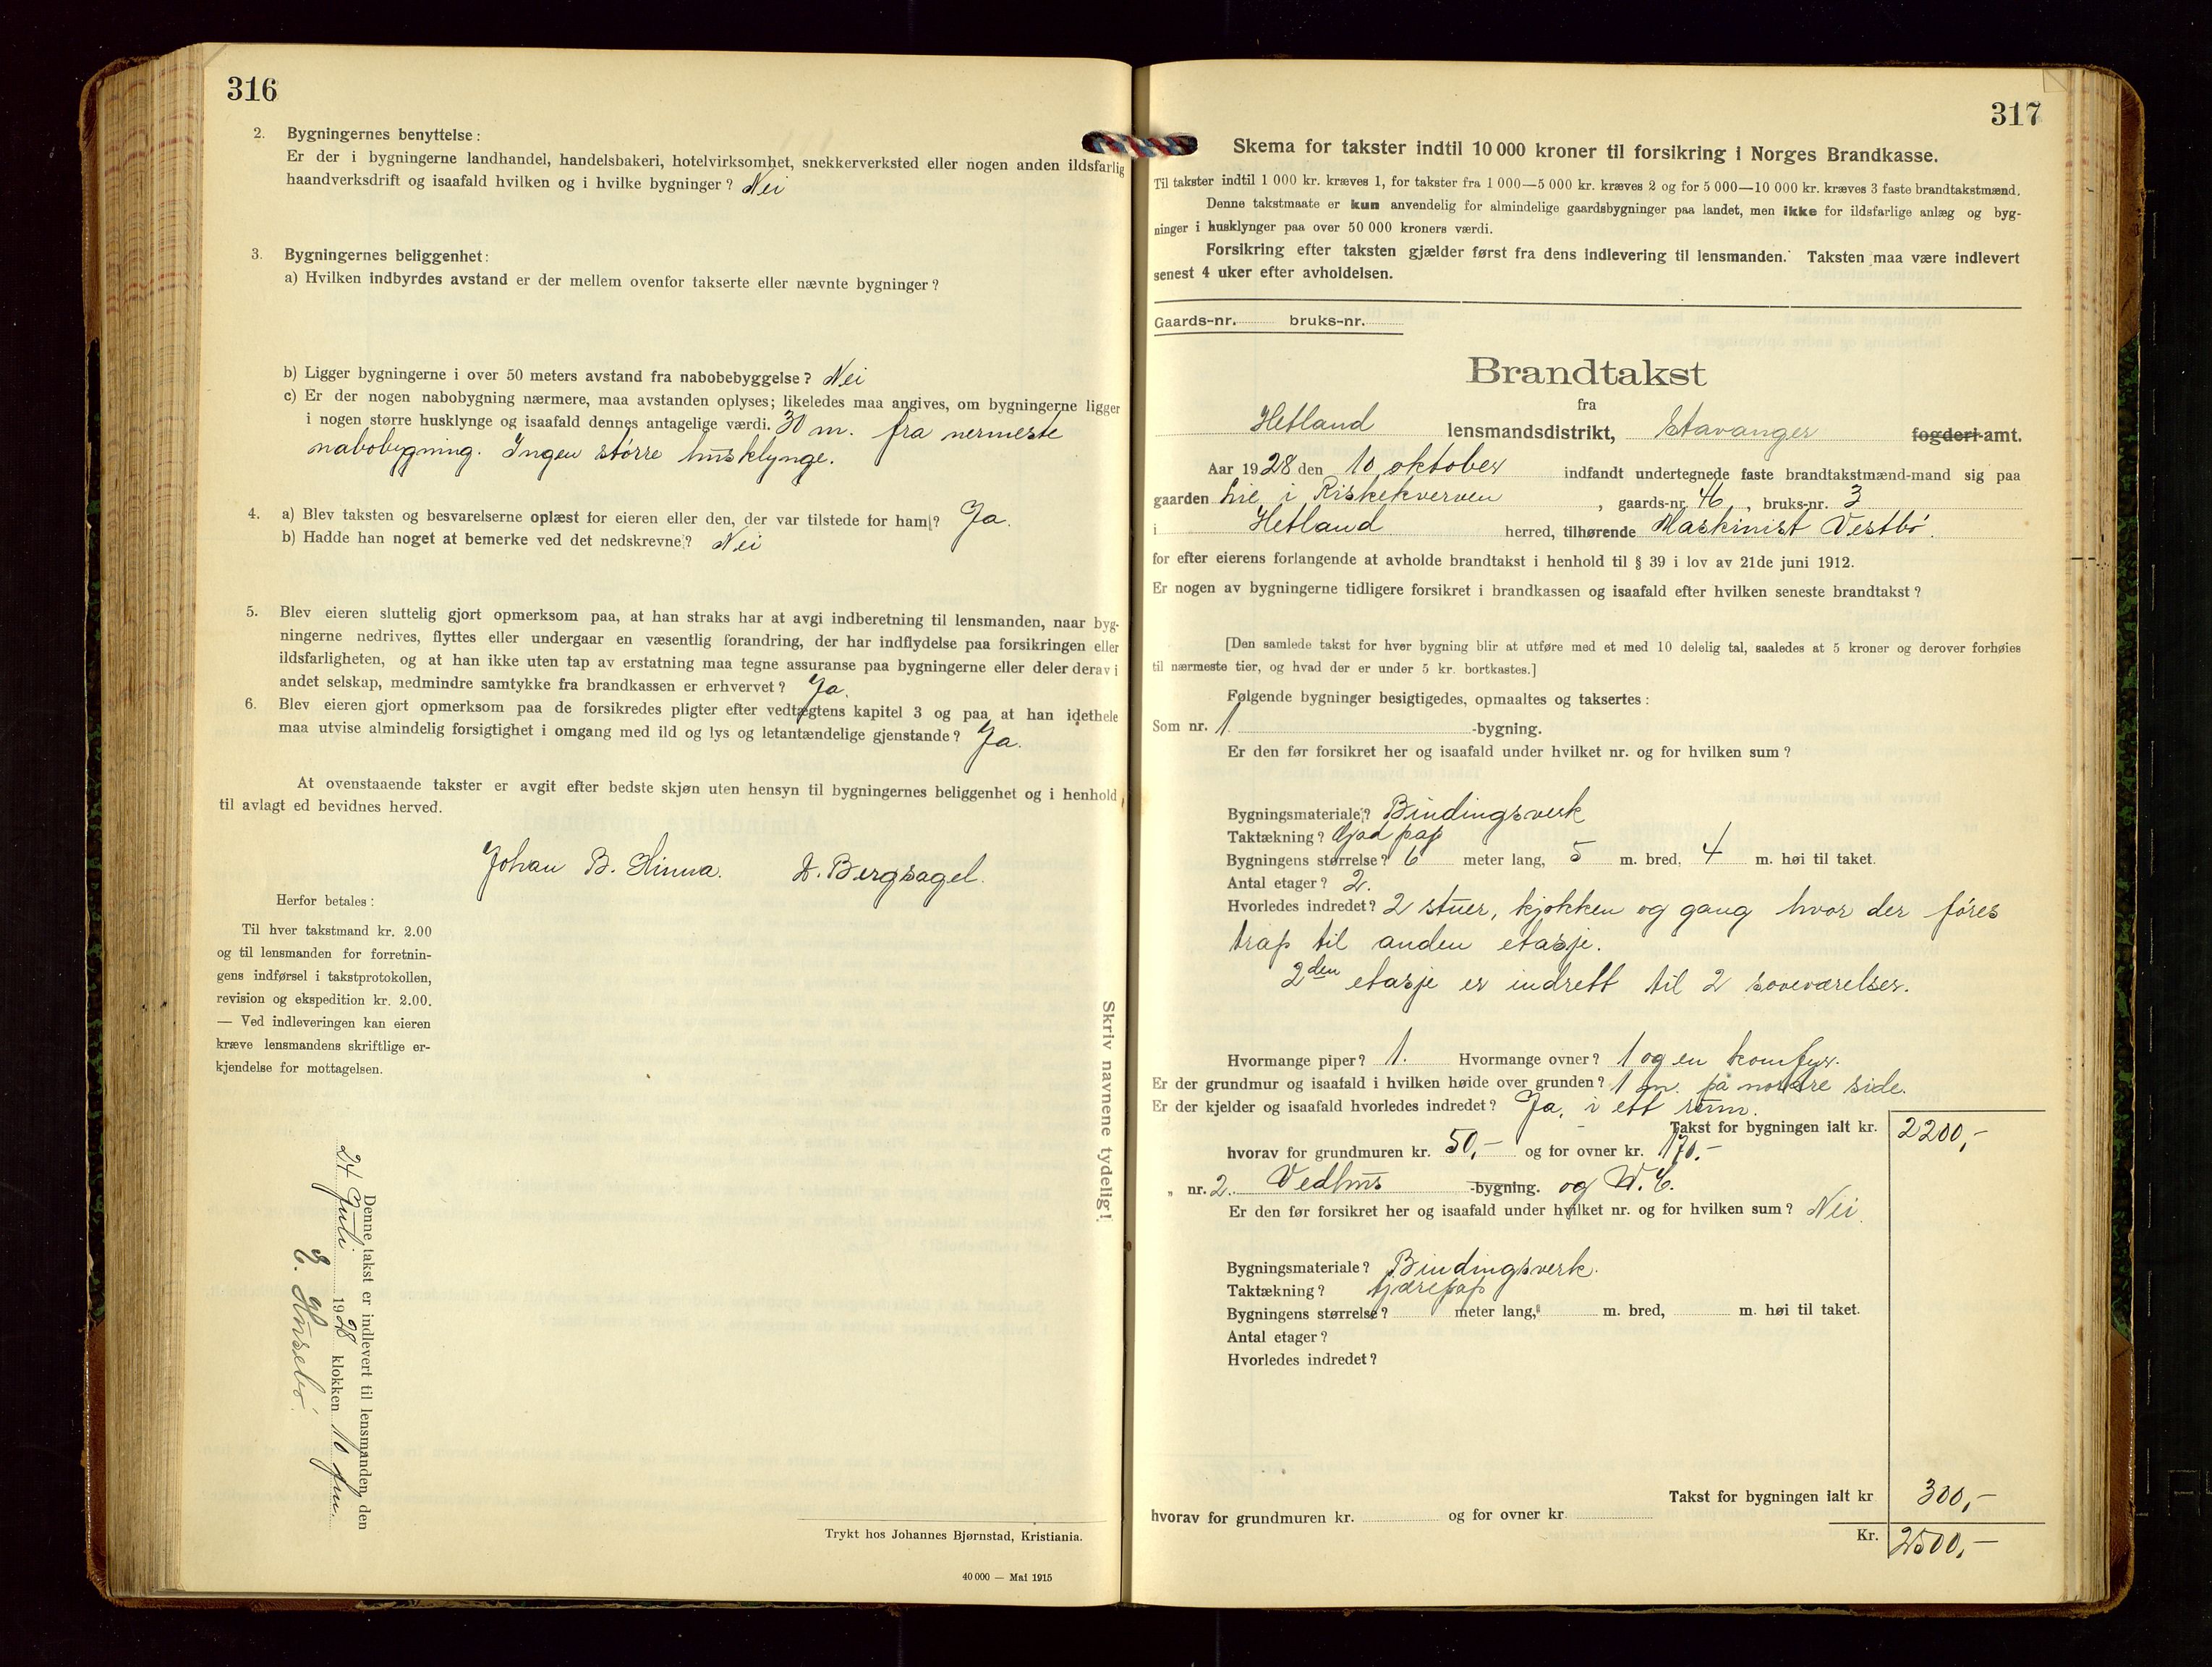 316
2. Bygningernes benyttelse:
Er der i bygningerne landhandel, handelsbakeri, hotelvirksomhet, snekkerverksted eller nogen anden ildsfarlig
haandverksdrift og isaafald hvilken og i hvilke bygninger? Nei
3. Bygningernes beliggenhet:
a) Hvilken indbyrdes avstand er der mellem ovenfor takserte eller nævnte bygninger?
b) Ligger bygningerne i over 50 meters avstand fra nabobebyggelse? Nei
c) Er der nogen nabobygning nærmere, maa avstanden oplyses; likeledes maa angives, om bygningerne ligger
i nogen større husklynge og isaafald dennes antagelige værdi. 30 m. fra nermeste
nabobygning. Ingen større husklynge.
4. a) Blev taksten og besvarelserne oplæst for eieren eller den, der var tilstede for ham? Ja.
b) Hadde han noget at bemerke ved det nedskrevne? Nei
5. Blev eieren sluttelig gjort opmerksom paa, at han straks har at avgi indberetning til lensmanden, naar byg-
ningerne nedrives, flyttes eller undergaar en væsentlig forandring, der har indflydelse paa forsikringen eller
ildsfarligheten, og at han ikke uten tap av erstatning maa tegne assuranse paa bygningerne eller deler derav i
andet selskap, medmindre samtykke fra brandkassen er erhvervet? Ja.
6. Blev eieren gjort opmerksom paa de forsikredes pligter efter vedtægtens kapitel 3 og paa at han idethele
maa utvise almindelig forsigtighet i omgang med ild og lys og letantændelige gjenstande? Ja.
At ovenstaaende takster er avgit efter bedste skjøn uten hensyn til bygningernes beliggenhet og i henhold
til avlagt ed bevidnes herved.
Johan B. Hinna. D. Bergsagel.
Herfor betales:
Til hver takstmand kr. 2.00
og til lensmanden for forretnin-
gens indførsel i takstprotokollen,
revision og ekspedition kr. 2.00.
— Ved indleveringen kan eieren
kræve lensmandens skriftlige er-
kjendelse for mottagelsen.
Skriv navnene tydelig!
Denne takst er indlevert til lensmanden, den
24 Juli 1928 klokken 10 fm.
E. Husebø.
Trykt hos Johannes Bjørnstad, Kristiania.
40 000 — Mai 1915
317
Skema for takster indtil 10 000 kroner til forsikring i Norges Brandkasse.
Til takster indtil 1 000 kr. kræves 1, for takster fra 1 000—5 000 kr. kræves 2 og for 5 000—10 000 kr. kræves 3 faste brandtakstmænd.
Denne takstmaate er kun anvendelig for almindelige gaardsbygninger paa landet, men ikke for ildsfarlige anlæg og byg-
ninger i husklynger paa over 50 000 kroners værdi.
Forsikring efter taksten gjælder først fra dens indlevering til lensmanden. Taksten maa være indlevert
senest 4 uker efter avholdelsen.
Gaards-nr. bruks-nr.
Brandtakst
fra
Hetland lensmandsdistrikt, Stavanger fogderi-amt.
Aar 1928 den 10 oktober indfandt undertegnede faste brandtakstmænd-mand sig paa
gaarden Lie i Riskekverven, gaards-nr. 46, bruks-nr. 3
i Hetland herred, tilhørende Maskinist Vestbø.
for efter eierens forlangende at avholde brandtakst i henhold til § 39 i lov av 21de juni 1912.
Er nogen av bygningerne tidligere forsikret i brandkassen og isaafald efter hvilken seneste brandtakst?
[Den samlede takst for hver bygning blir at utføre med et med 10 delelig tal, saaledes at 5 kroner og derover forhøies
til nærmeste tier, og hvad der er under 5 kr. bortkastes.]
Følgende bygninger besigtigedes, opmaaltes og taksertes:
Som nr. 1 -bygning.
Er den før forsikret her og isaafald under hvilket nr. og for hvilken sum?
Bygningsmateriale? Bindingsverk
Taktækning? pap
Bygningens størrelse? 6 meter lang, 5 m. bred, 4 m. høi til taket.
Antal etager? 2.
Hvorledes indredet? 2 stuer, kjøkken og gang hvor der føres
trap til anden etasje.
2den etasje er indrett til 2 soveværelser.
Hvormange piper? 1. Hvormange ovner? 1 og en komfyr.
Er der grundmur og isaafald i hvilken høide over grunden? 1 m. på nordre side.
Er der kjelder og isaafald hvorledes indredet? Ja, i ett rum.
Takst for bygningen ialt kr. 2200,-
hvorav for grundmuren kr. 50,- og for ovner kr. 170.-
" nr. 2. Vedhus -bygning. og W.C.
Er den før forsikret her og isaafald under hvilket nr. og for hvilken sum? Nei
Bygningsmateriale? Bindingsverk.
Taktækning? tjærepap
Bygningens størrelse? meter lang, m. bred, m. høi til taket.
Antal etager?
Hvorledes indredet?
Takst for bygningen ialt kr 300,-
hvorav for grundmuren kr. og for ovner kr.
Kr. 2500,-